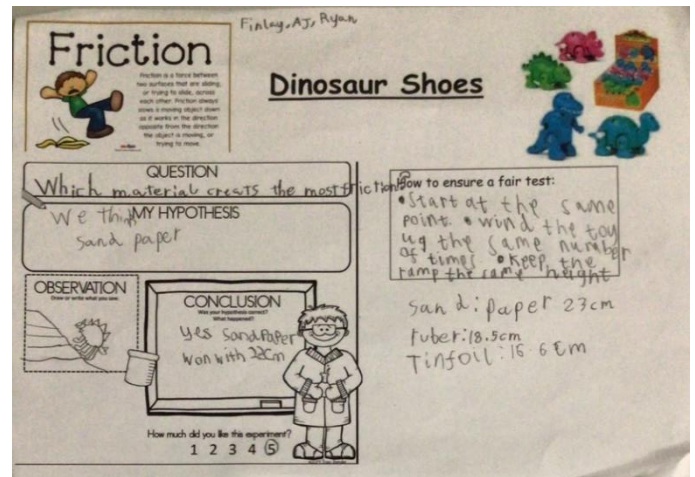 Finlay, AJ, Ryan
Friction
Friction is a force between
two surfaces that are sliding,
or trying to slide, across
each other. Friction always
slows a moving object down
as it works in the direction
opposite from the direction
the object is moving, or
trying to move.
Dinosaur Shoes
QUESTION
Which material creats the most friction?
MY HYPOTHESIS
We think
sand paper
OBSERVATION
Draw or write what you see.
CONCLUSION
Was your hypothesis correct?
What happened?
yes SandPaper
won with 22cm
How much did you like this experiment?
1 2 3 4 5
How to ensure a fair test:
•Start at the same
point. •wind the toy
up the same number
of times •keep the
ramp the same height
sand: paper 23cm
ruber: 18.5cm
Tinfoil: 16.6cm